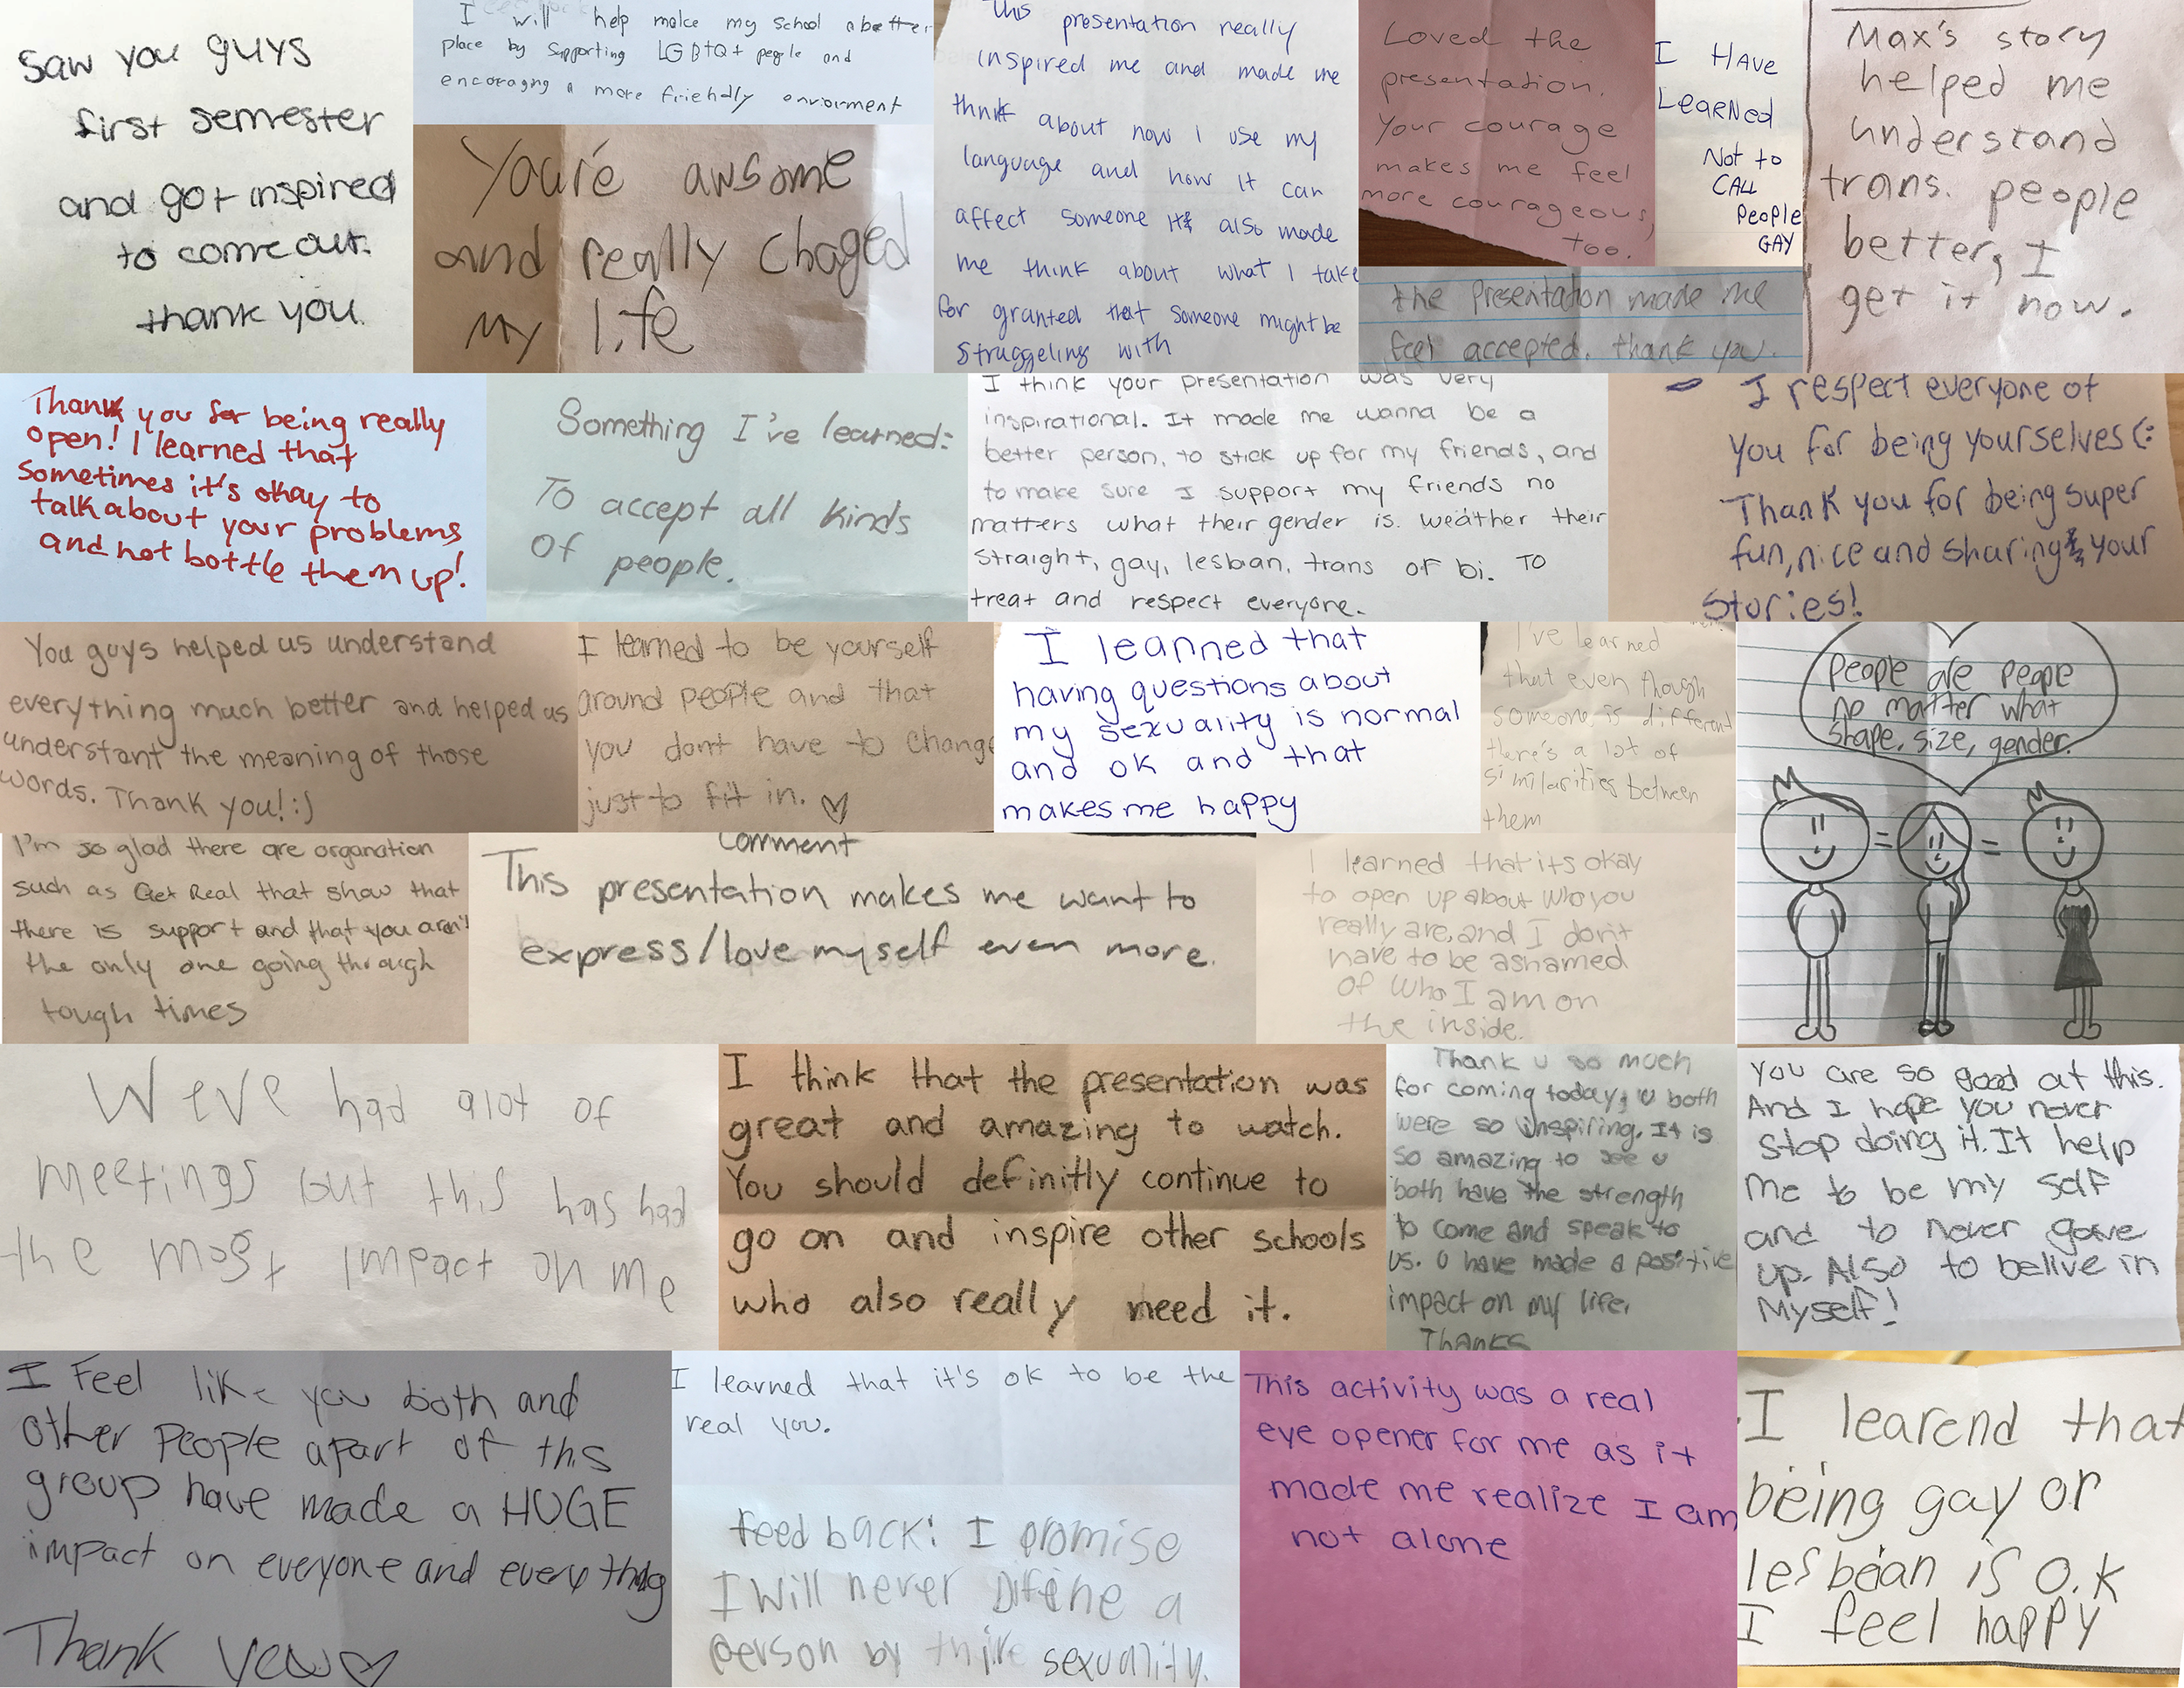 Saw you guys
first semester
and got inspired
to come out.
thank you.
I will help make my school a better
place by supporting LGBTQ+ people and
encoragng a more friehdly enviorment
You're awsome
and really chaged
my life
This presentation really
inspired me and made me
think about how i use my
language and how it can
affect someone It also made
me think about what I take
for granted that someone might be
struggeling with
Loved the
presentation.
Your courage
makes me feel
more courageous,
too.
I HAVE
LEARNED
Not to
CALL
PEOPLE
GAY
the presentation made me
feel accepted. thank you.
Max's story
helped me
understand
trans. people
better, I
get it now.
Thank you for being really
open! I learned that
sometimes it's okay to
talk about your problems
and not bottle them up!
Something I've learned:
To accept all kinds
of people.
I think your presentation was very
inspirational. It made me wanna be a
better person, to stick up for my friends, and
to make sure I support my friends no
matters what their gender is. weather their
straight, gay, lesbian, trans or bi. To
treat and respect everyone.
- I respect everyone of
you for being yourselves (:
Thank you for being super
fun, nice and sharing your
stories!
You guys helped us understand
everything much better and helped us
understant the meaning of those
words. Thank you! :)
I learned to be yourself
around people and that
you dont have to change
just to fit in. ♡
I leanned that
having questions about
my sexuality is normal
and ok and that
makes me happy
I've learned
that even though
someone is different
there's a lot of
similarities between
them
People are people
no matter what
shape, size, gender.
= =
I'm so glad there are organation
such as Get Real that show that
there is support and that you aren't
the only one going through
tough times
Comment
This presentation makes me want to
express/love myself even more.
I learned that its okay
to open up about who you
really are, and I don't
have to be ashamed
of who I am on
the inside.
Weve had alot of
meetings but this has had
the most impact on me
I think that the presentation was
great and amazing to watch.
You should definitly continue to
go on and inspire other schools
who also really need it.
Thank u so much
for coming today, u both
were so inspiring. It is
so amazing to see u
both have the strength
to come and speak to
us. U have made a positive
impact on my life.
Thanks
You are so good at this.
And I hope you never
stop doing it. It help
me to be my self
and to never gave
up. Also to belive in
Myself!
I Feel like you both and
other People apart of this
group have made a HUGE
impact on everyone and everything
Thank yew ♡
I learned that it's ok to be the
real you.
feed back: I promise
I will never Difine a
person by thire sexuality.
This activity was a real
eye opener for me as it
made me realize I am
not alone
I learend that
being gay or
lesbean is o.k
I feel happy